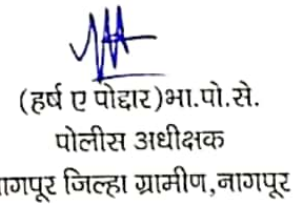 (हर्ष ए पोद्दार)भा.पो.से.
पोलीस अधीक्षक
ागपूर जिल्हा ग्रामीण,नागपूर